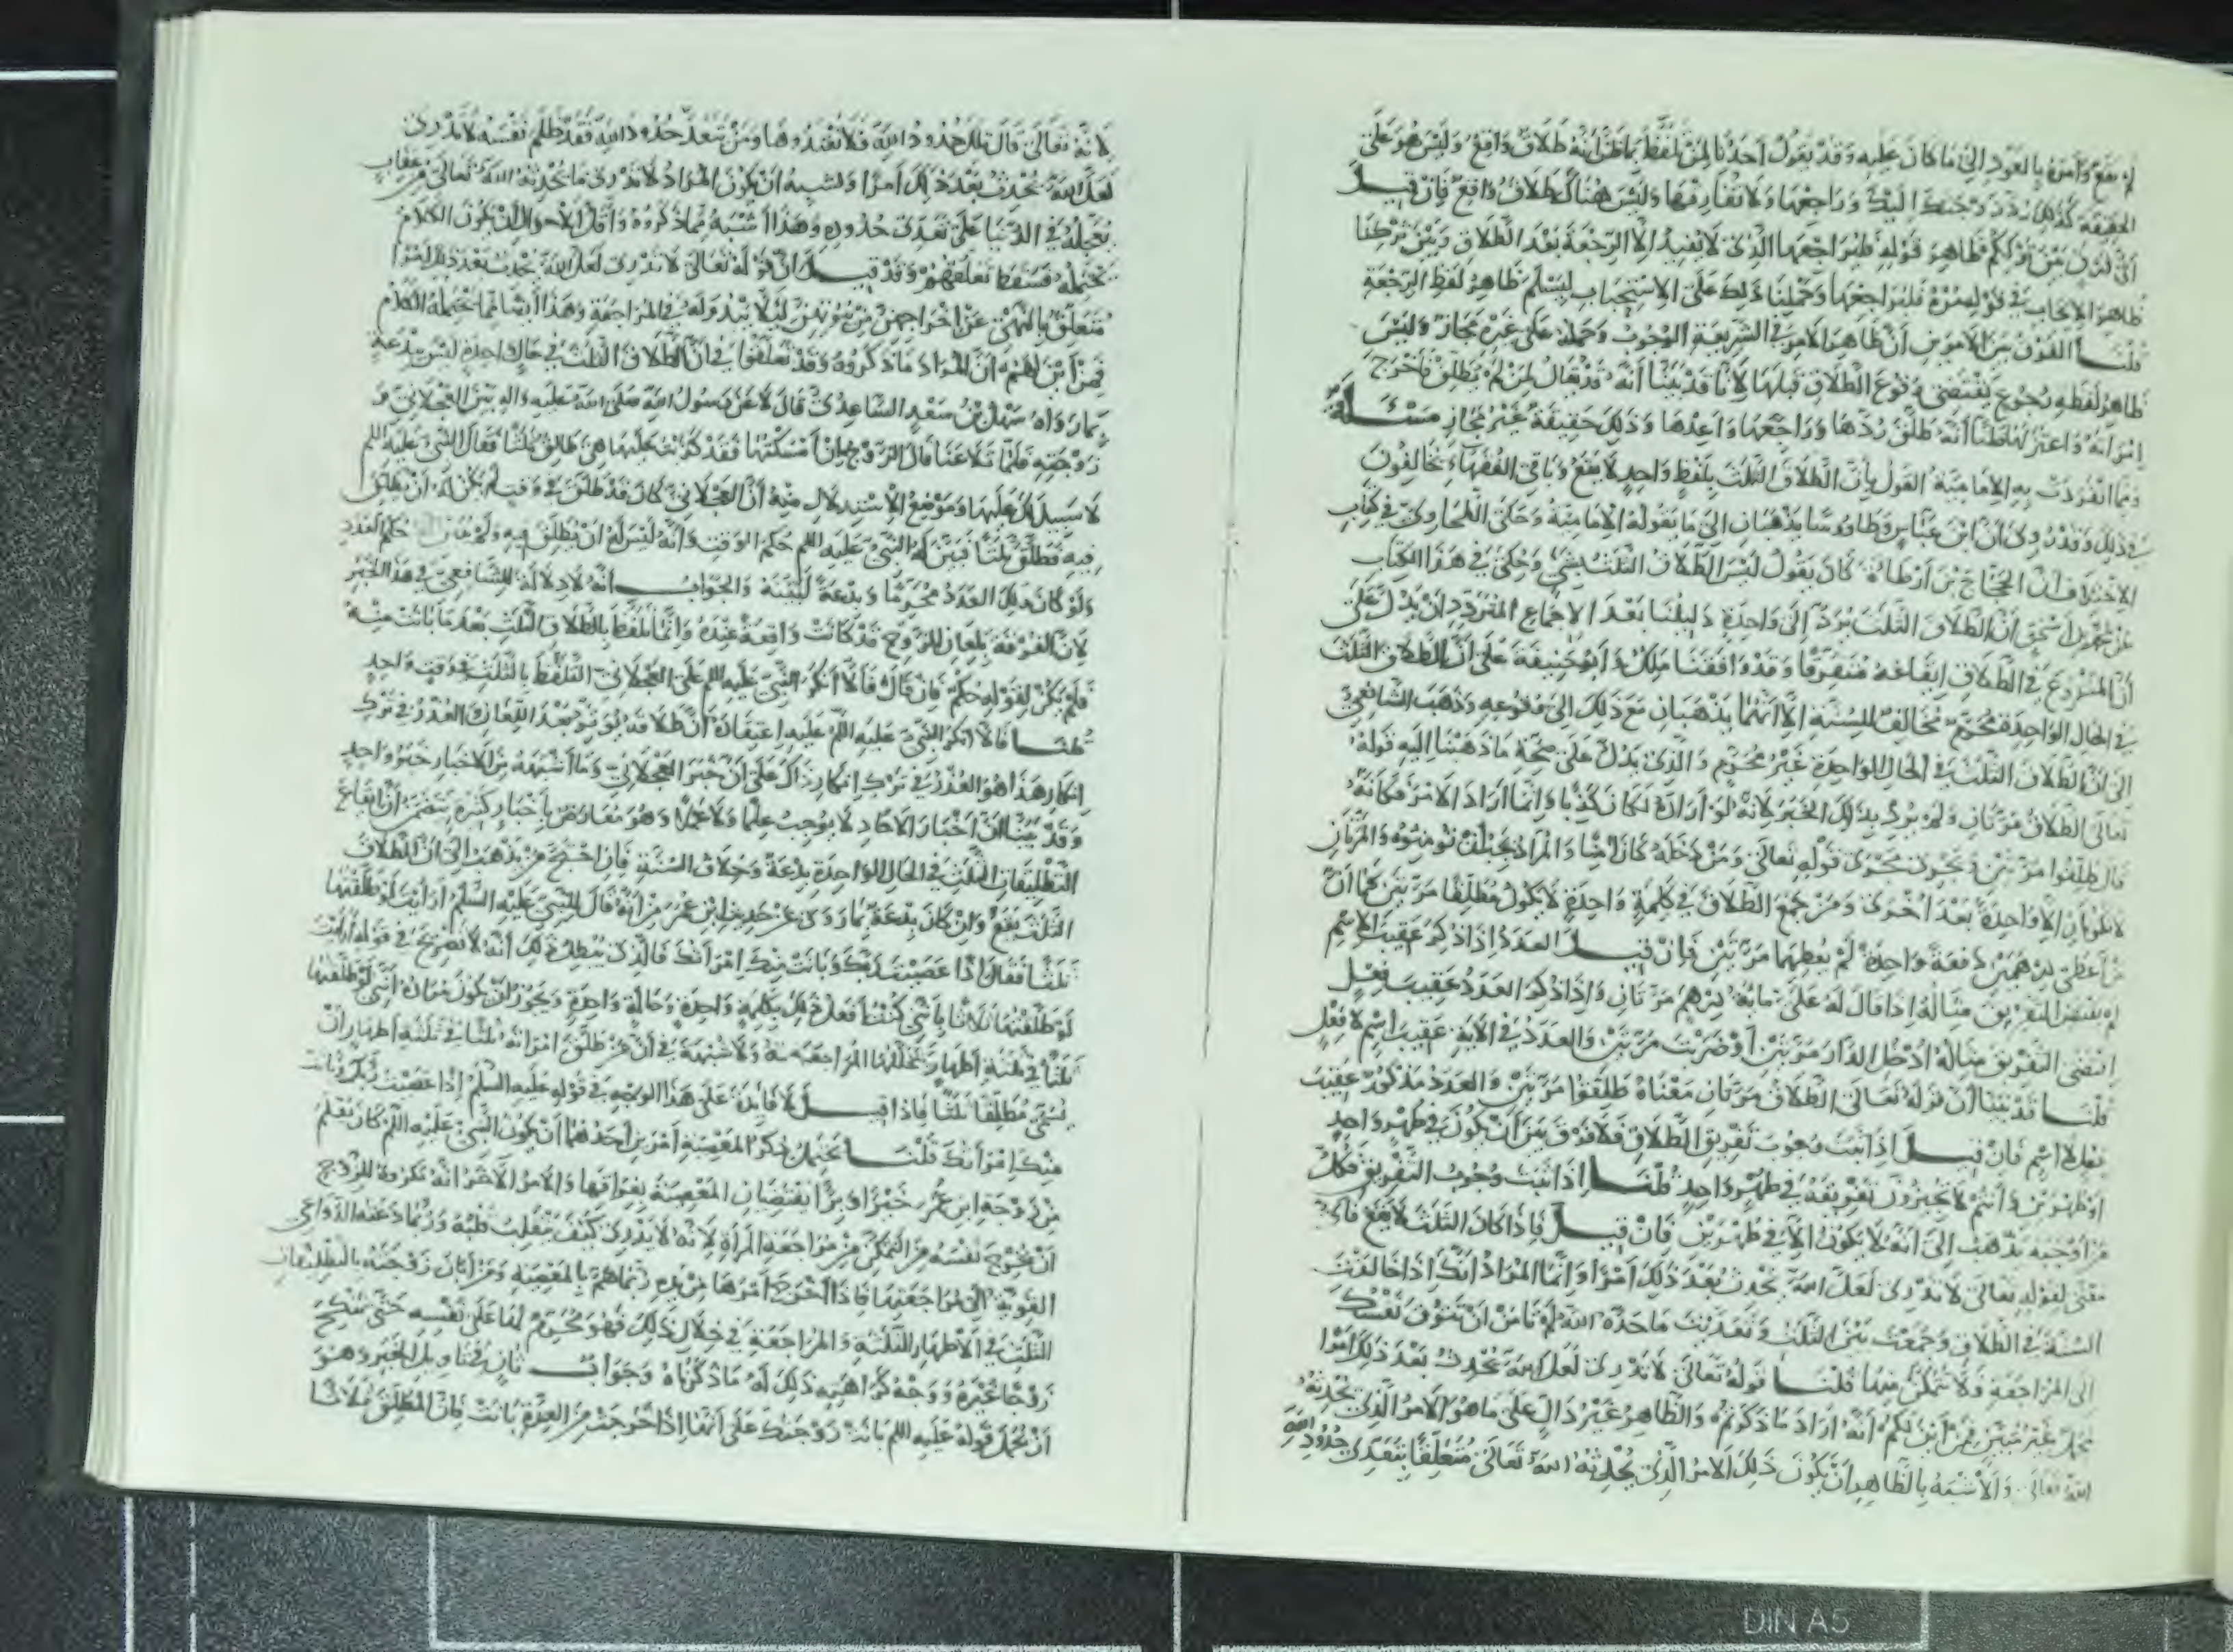 لم يقع وأمره بالعود إلى ما كان عليه وقد يقول أحدنا لمن تلفظ بما ظن أنه طلاق واقع وليس هو على
الحقيقة كذلك ردد زوجتك إليك وراجعها ولا تفارقها وليس هناك طلاق واقع فإن قيل
أي فرق بين ترككم ظاهر قوله فليراجعها الذي لا يفيد إلا الرجعة بعد الطلاق وبين تركنا
ظاهر الإيجاب في قوله مره فليراجعها وحملنا ذلك على الاستحباب ليسلم ظاهر لفظ الرجعة
قلنا الفرق بين الأمرين أن ظاهر الأمر في الشريعة الوجوب وحمله على غيره مجاز وليس
ظاهر لفظه رجوع يقتضي وقوع الطلاق قبلها لأنا قد بينا أنه قد يقال لمن لم يطلق فأخرج
امرأته واعتزلها ظنا أنه طلق ردها وراجعها وأعدها وذلك حقيقة غير مجاز مسئلة
ومما انفردت به الإمامية القول بأن الطلاق الثلث بلفظ واحد لا يقع وباقي الفقهاء يخالفون
في ذلك وقد روي أن ابن عباس وطاوسا يذهبان إلى ما يقوله الإمامية وحكى الطحاوي في كتاب
الاختلاف أن الحجاج بن أرطاة كان يقول ليس الطلاق الثلث بشيء وحكي في هذا الكتاب
عن محمد بن إسحق أن الطلاق الثلث يرد إلى واحدة دليلنا بعد الإجماع المتردد أن يدل على
أن المشروع في الطلاق إيقاعه متفرقا وقد وافقنا ملك وأبو حنيفة على أن الطلاق الثلث
في الحال الواحدة محرم مخالف للسنة إلا أنهما يذهبان مع ذلك إلى وقوعه وذهب الشافعي
إلى أن الطلاق الثلث في الحال الواحدة غير محرم والذي يدل على صحة ما ذهبنا إليه قوله
تعالى الطلاق مرتان ولم يرد بذلك الخبر لأنه لو أراده لكان كذبا وإنما أراد الأمر فكأنه
قال طلقوا مرتين ويجري مجرى قوله تعالى ومن دخله كان آمنا والمراد يجب أن تؤمنوه والمرتان
لا تكونان إلا واحدة بعد أخرى ومن جمع الطلاق في كلمة واحدة لا يكون مطلقا مرتين كما أن
من أعطى درهمين دفعة واحدة لم يعطهما مرتين فإن قيل العدد إذا ذكر عقيب الاسم
لم يقتض التفريق مثاله إذا قال له علي مائة درهم مرتان وإذا ذكر العدد عقيب فعل
اقتضى التفريق مثاله أدخل الدار مرتين أو ضربت مرتين والعدد في الآية عقيب اسم لا فعل
قلنا قد بينا أن قوله تعالى الطلاق مرتان معناه طلقوا مرتين والعدد مذكور عقيب
فعل لا اسم فإن قيل إذا ثبت وجوب تفريق الطلاق فلا فرق بين أن يكون في طهر واحد
أو طهرين وأنتم لا تجيزون تفريقه في طهر واحد قلنا إذا ثبت وجوب التفريق فكل
من أوجبه يذهب إلى أنه لا يكون إلا في طهرين فإن قيل فإذا كان الثلث لا يقع فأي
معنى لقوله تعالى لا تدري لعل الله يحدث بعد ذلك أمرا وإنما المراد أنك إذا خالفت
السنة في الطلاق وجمعت بين الثلث وتعديت ما حده الله لم تأمن أن تتوق نفسك
إلى المراجعة فلا تتمكن منها قلنا قوله تعالى لا تدري لعل الله يحدث بعد ذلك أمرا
مجمل غير مبين فمن أين لكم أنه أراد ما ذكرتم والظاهر غير دال على ما هو الأمر الذي يحدثه
الله تعالى والأشبه بالظاهر أن يكون ذلك الأمر الذي يحدثه الله تعالى متعلقا بتعدي حدود الله
لأنه تعالى قال تلك حدود الله فلا تعتدوها ومن يتعد حدود الله فقد ظلم نفسه لا تدري
لعل الله يحدث بعد ذلك أمرا ويشبه أن يكون المراد لا تدري ما يحدثه الله تعالى من عقاب
يعجله في الدنيا على تعدي حدوده وهذا أشبه مما ذكروه وأقل الأحوال أن يكون الكلام
يحتمله فسقط تعلقهم وقد قيل إن قوله تعالى لا تدري لعل الله يحدث بعد ذلك أمرا
متعلق بالنهي عن إخراجهن من بيوتهن لئلا يبدو له في المراجعة وهذا أيضا مما يحتمله الكلام
فمن أين لهم أن المراد ما ذكروه وقد تعلقوا في أن الطلاق الثلث في حال واحدة ليس ببدعة
بما رواه سهل بن سعد الساعدي قال لاعن رسول الله صلى الله عليه وآله بين العجلاني و
زوجته فلما تلاعنا قال الزوج إن أمسكتها فقد كذبت عليها هي طالق ثلثا فقال النبي عليه السلم
لا سبيل لك عليها وموضع الاستدلال منه أن العجلاني كان قد طلق في وقت لم يكن له أن يطلق
فيه فطلق ثلثا فبين له النبي عليه السلم حكم الوقت وأنه ليس له أن يطلق فيه ولم يبين حكم العدد
ولو كان ذلك العدد محرما وبدعة لبينه والجواب أنه لا دلالة للشافعي في هذا الخبر
لأن الفرقة بلعان الزوج قد كانت واقعة عنده وإنما تلفظ بالطلاق الثلث بعد ما بانت منه
فلم يكن لقوله حكم فإن قال فألا أنكر النبي عليه السلم على العجلاني التلفظ بالثلث في وقت واحد
قلنا فألا أنكر النبي عليه السلم عليه اعتقاده أن طلاقه يؤثر بعد اللعان العذر في ترك
إنكار هذا هو العذر في ترك إنكار ذاك على أن خبر العجلاني وما أشبهه من الأخبار خبر واحد
وقد بينا أن أخبار الآحاد لا يوجب علما ولا عملا وهو معارض بأخبار كثيرة تتضمن أن إيقاع
التطليقات الثلث في الحال الواحدة بدعة وخلاف السنة فإن احتج من يذهب إلى أن الطلاق
الثلث يقع وإن كان بدعة بما روى عن حديث ابن عمر من أنه قال للنبي عليه السلم أرأيت لو طلقتها
ثلثا فقال إذا عصيت ربك وبانت منك امرأتك فالذي يبطل ذلك أنه لا تصريح في قوله أرأيت
لو طلقتها ثلاثا بأنني كنت أفعل ذلك بكلمة واحدة وحالة واحدة ويجوز أن يكون مراده أنني لو طلقتها
ثلثا في ثلثة أطهار تخللها المراجعة ولا شبهة في أن من طلق امرأته ثلثا في ثلثة أطهار أن
يسمى مطلقا ثلثا فإذا قيل لا فائدة على هذا الوجه في قوله عليه السلم إذا عصيت ربك وبانت
منك امرأتك قلنا يحتمل ذكر المعصية أمرين أحدهما أن يكون النبي عليه السلم كان يعلم
من زوجة ابن عمر خيرا وبرا يقتضيان المعصية بفراقها والأمر الآخر أنه مكروه للزوج
أن يخرج نفسه من التمكن من مراجعة المرأة لأنه لا يدري كيف ينقلب قلبه وربما دعته الدواعي
القوية إلى مراجعتها فإذا أخرج أمرها من يده ربما هم بالمعصية ومن أبان زوجته بالتطليقات
الثلث في الأطهار الثلثة والمراجعة في خلال ذلك فهو محرم لها على نفسه حتى تنكح
زوجا غيره ووجه كراهية ذلك له ما ذكرناه وجواب ثان في تأويل الخبر وهو
أن يحمل قوله عليه السلم بانت زوجتك على أنها إذا خرجت من العدة بانت فإن المطلق ثلاثا